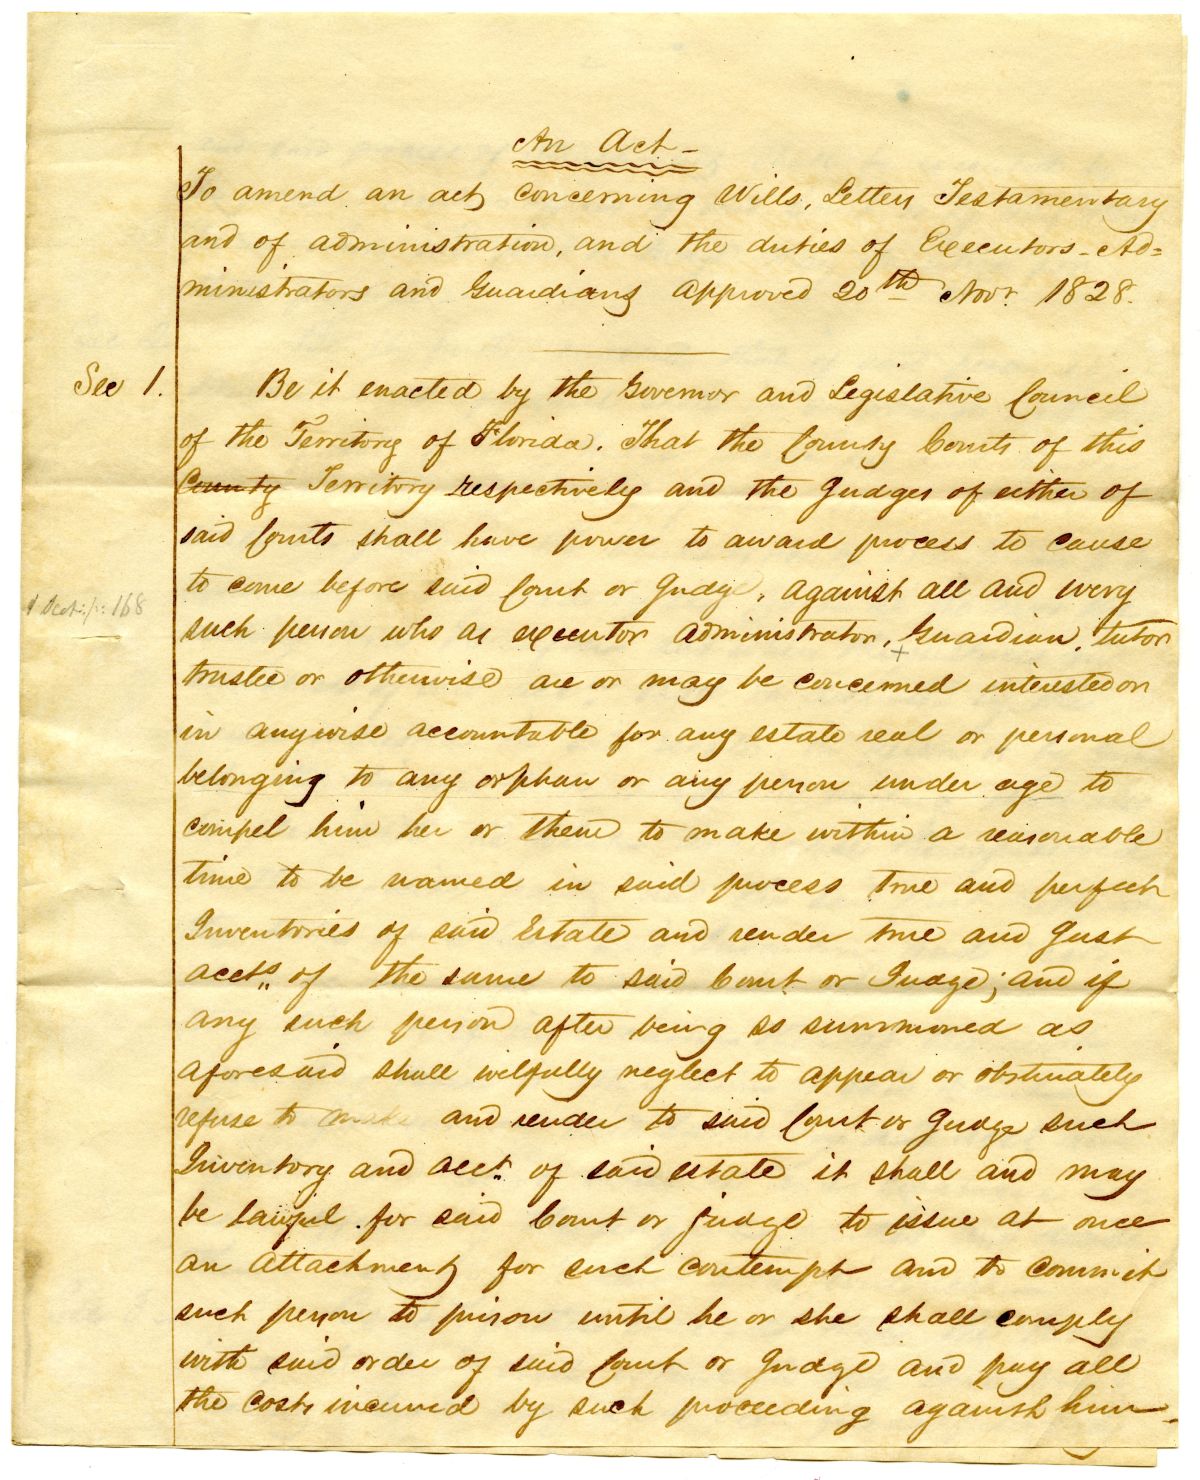 An Act -
To amend an act, concerning Wills, Letters Testamentary
and of administration, and the duties of Executors - Ad=
ministrators and Guardians approved 20th Novr. 1828.
Sec 1. Be it enacted by the Governor and Legislative Council
of the Territory of Florida. That the County Courts of this
County Territory respectively and the Judges of either of
said Courts shall have power to award process to cause
to come before said Court or Judge, against all and every
such person who as executor administrator, Guardian, tutor
trustee or otherwise are or may be concerned interested or
in anywise accountable for any estate real or personal
belonging to any orphan or any person under age to
compel him her or them to make within a reasonable
time to be named in said process true and perfect
Inventories of said Estate and render true and Just
accts. of the same to said Court or Judge; and if
any such person after being so summoned as
aforesaid shall wilfully neglect to appear or obstinately
refuse to make and render to said Court or Judge such
Inventory and acct. of said estate it shall and may
be lawful for said Court or judge to issue at once
an attachment for such contempt and to commit
such person to prison until he or she shall comply
with said order of said Court or Judge and pay all
the costs incurred by such proceeding against him
168